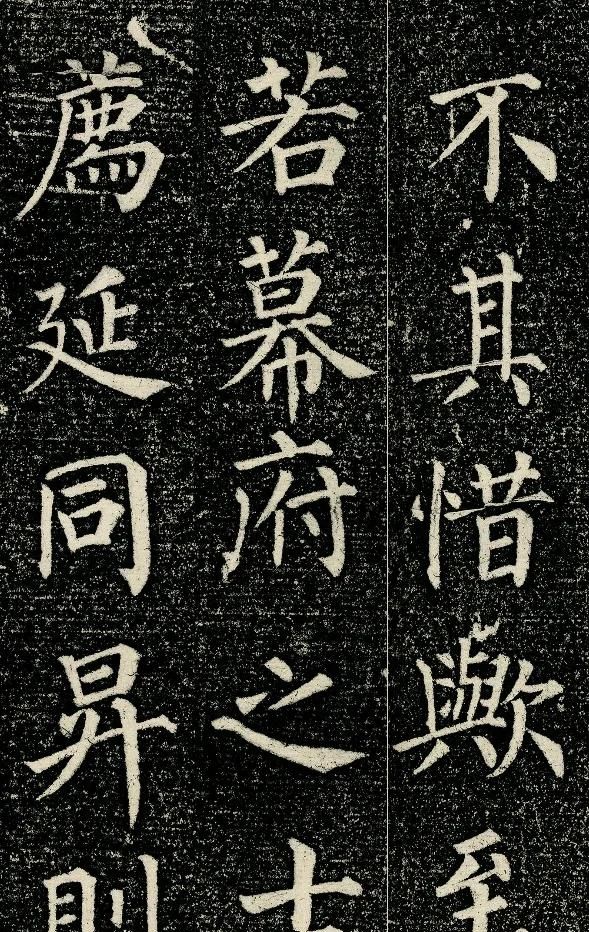 不其惜歟至
若幕府之士
薦延同昇則